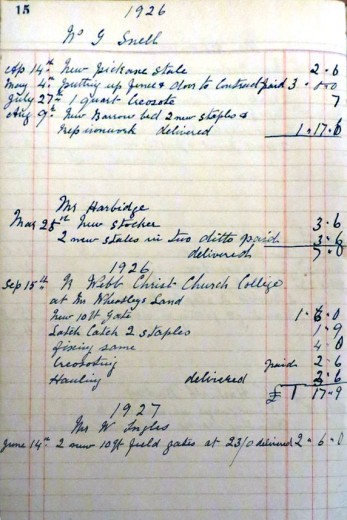 15
1926
Mr G Snell
Ap 14th New pickaxe stale 2 - 6
May 4th putting up fence & Door to Contract paid 3 - 0 - 0
July 27th 1 quart Creosote 7
Aug 9th New Barrow bed 2 new staples &
Rep ironwork delivered 1 - 17 - 6
Mr Harbidge
Mar 25th New stocker 3 - 6
2 new stales in two ditto paid 3 - 6
delivered 7 - 0
1926
Sep 15th N Webb Christ Church College
at Mr Wheatleys Land
New 10ft Gate 1 - 6 - 0
Latch Catch 2 staples 1 - 9
fixing same 4 - 0
Creosoting paid 2 - 6
Hauling delivered 3 - 6
£ 1 17 - 9
1927
Mr W Ingles
June 14th 2 new 10ft field gates at 23/0 delivered 2 - 6 - 0